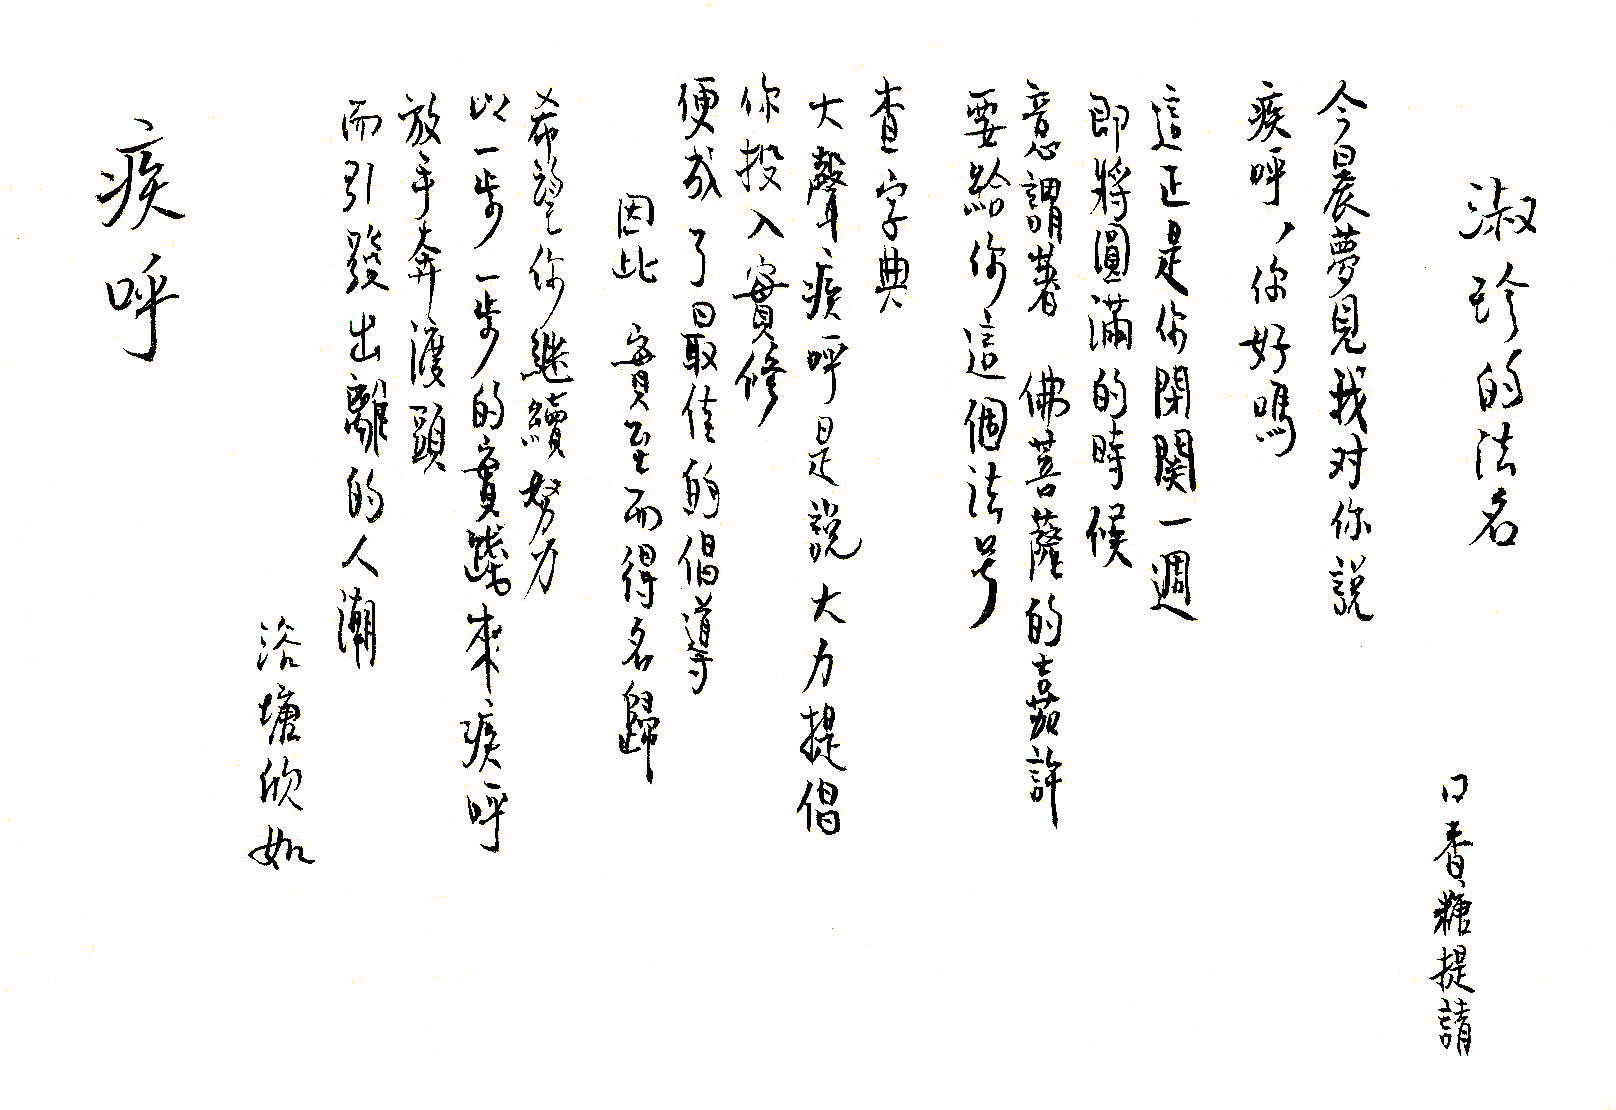 淑珍的法名
口香糖提請
今晨夢見我对你說
疾呼，你好嗎
這正是你閉関一週
即將圓滿的時候
意謂著 佛菩薩的嘉許
要給你這個法号
查字典
大聲疾呼是說大力提倡
你投入實修
便成了最佳的倡導
因此 實至而得名歸
希望你継續努力
以一步一步的實踐來疾呼
放手奔渡
而引發出離的人潮
浴塘欣如
疾呼